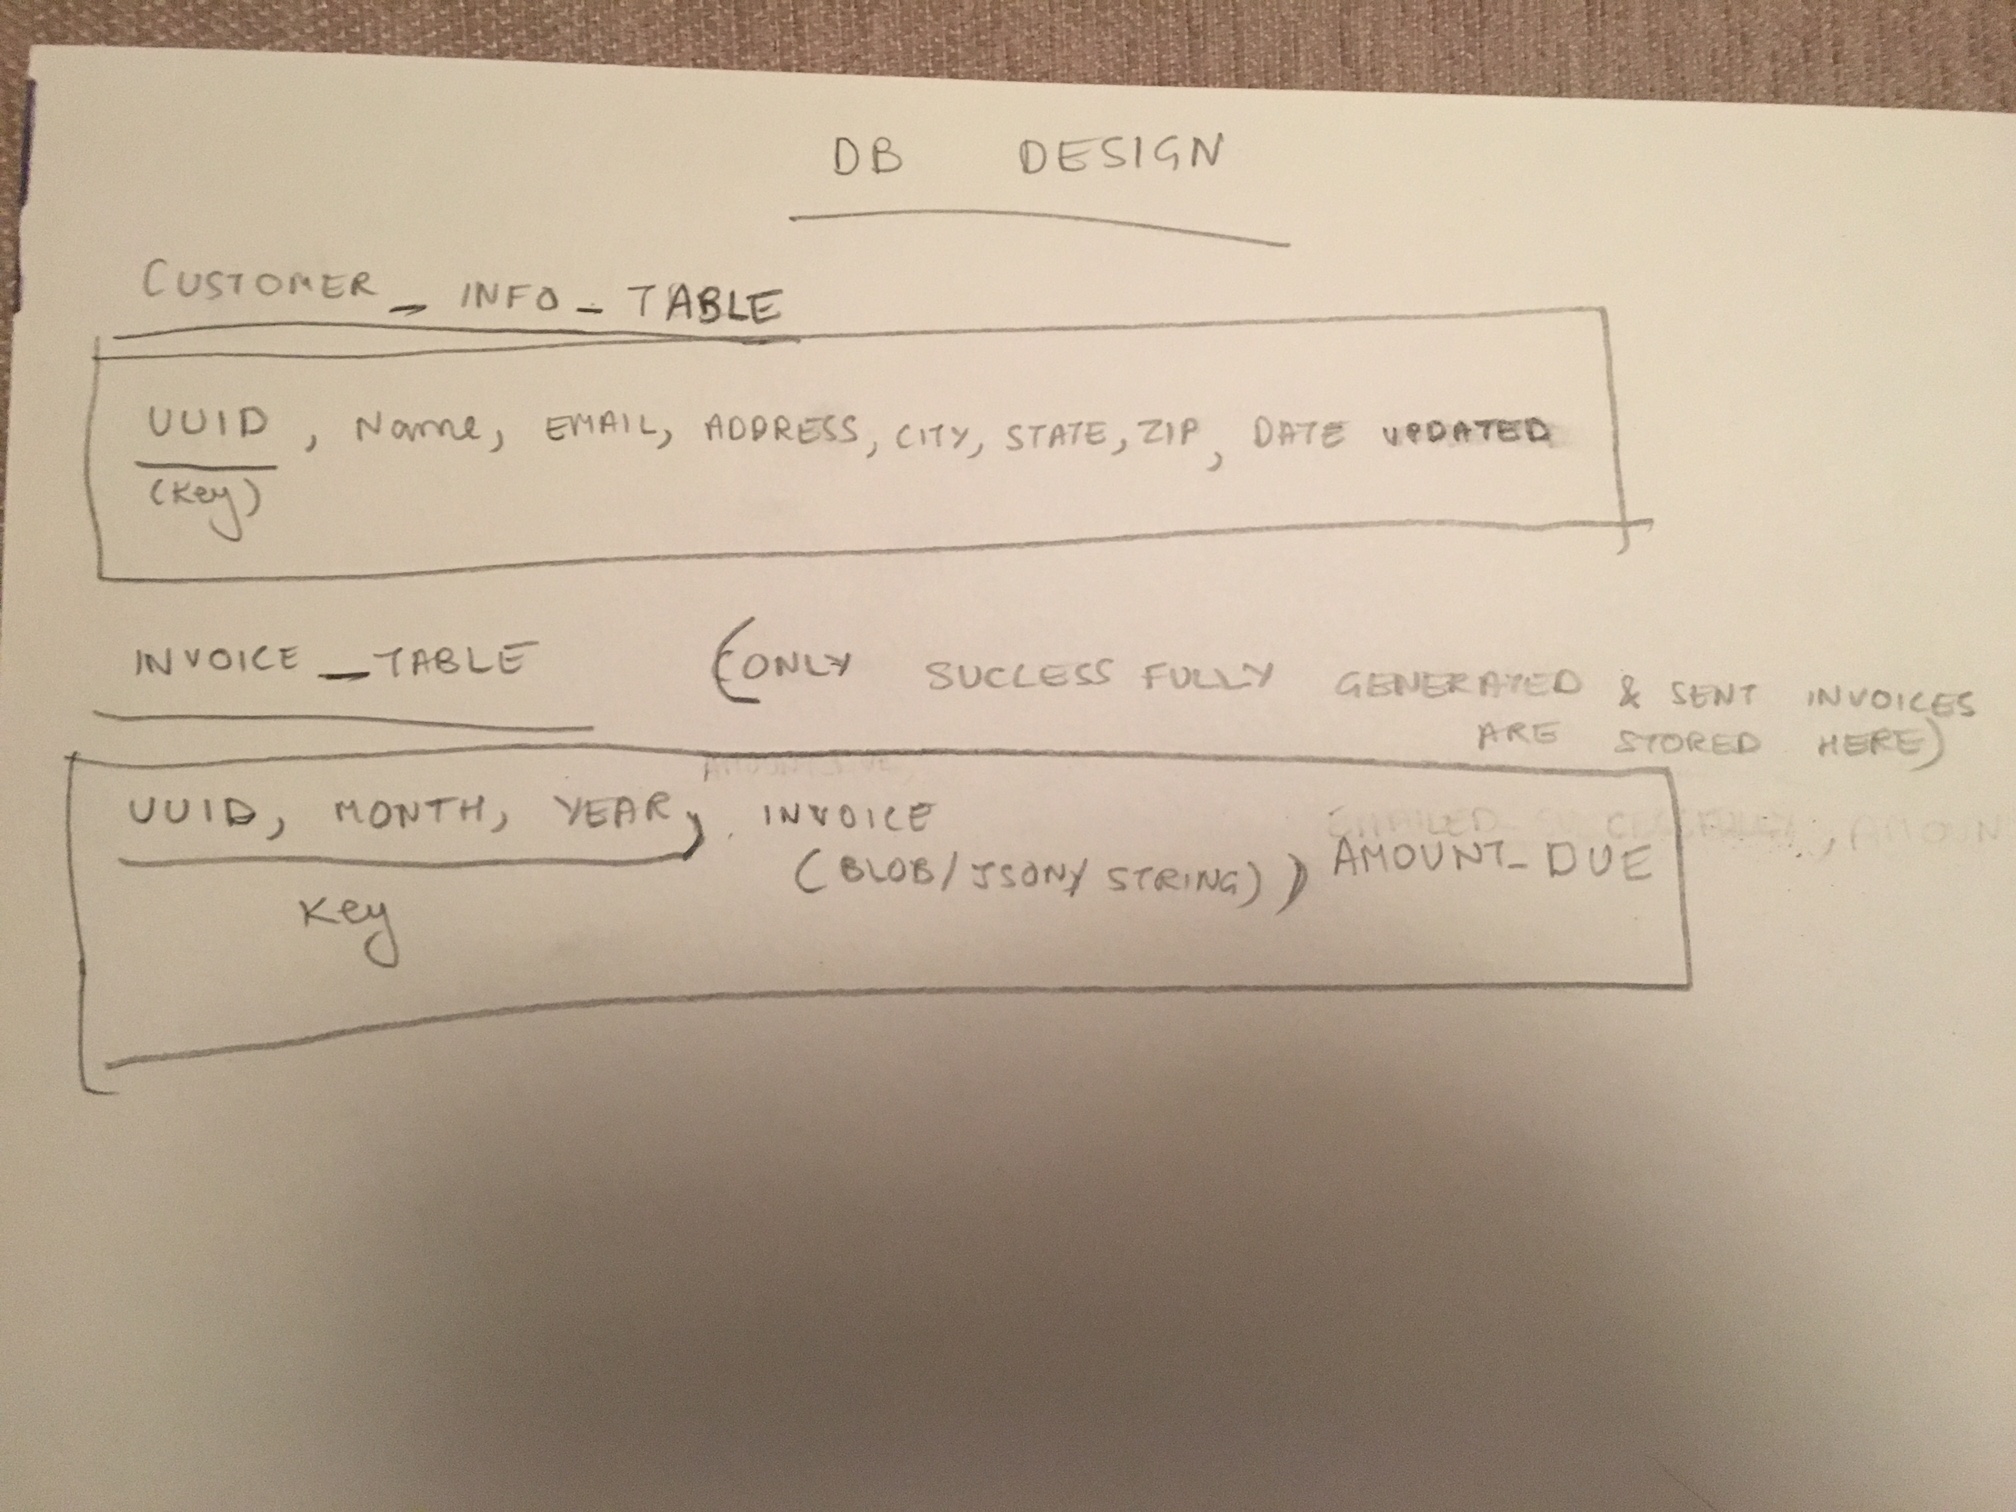 DB DESIGN
CUSTOMER_INFO_TABLE
UUID, Name, EMAIL, ADDRESS, CITY, STATE, ZIP, DATE UPDATED
(Key)
INVOICE_TABLE (ONLY SUCCESSFULLY GENERATED & SENT INVOICES
ARE STORED HERE)
AMOUNT DUE,
UUID, MONTH, YEAR, INVOICE
(BLOB/JSON/STRING), AMOUNT_DUE
Key